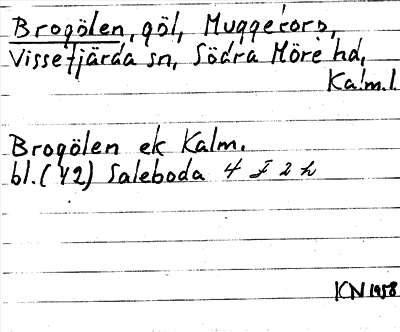 Brogölen, göl, Muggetorp,
Vissefjärda sn, Södra Möre hd,
Kalm.l.
Brogölen ek Kalm.
bl.(42) Saleboda 4 F 2 h
KN 1958